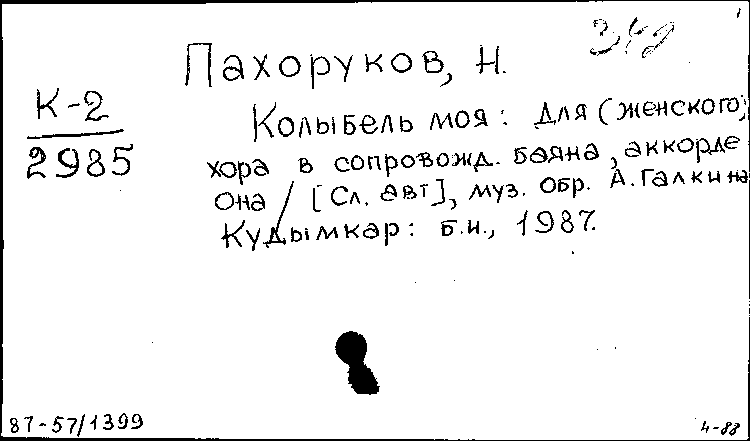 Пахоруков, Н.
К-2
2985
Колыбель моя: Для (женского)
хора в сопровожд. баяна, аккорде
она / [Сл. авт], муз. обр. А. Галкина
Кудымкар: б.и., 1987.
87-57/1399
4-88